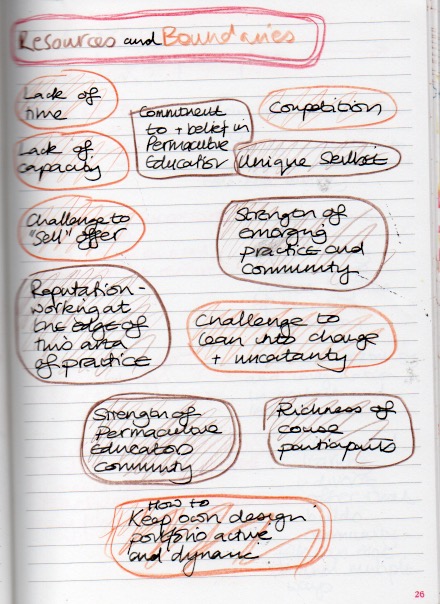 Resources and Boundaries
Lack of
time
Commitment
to + belief in
Permaculture
Education
Competition
Lack of
capacity
Unique Skillset
Challenge to
"sell" offer
Strength of
emerging
practice and
community
Reputation -
working at
the edge of
this area
of practice
Challenge to
lean into change
+ uncertainty
Strength of
Permaculture
Educators
Community
Richness of
course
participants
How to
Keep own design
portfolio active
and dynamic.
26